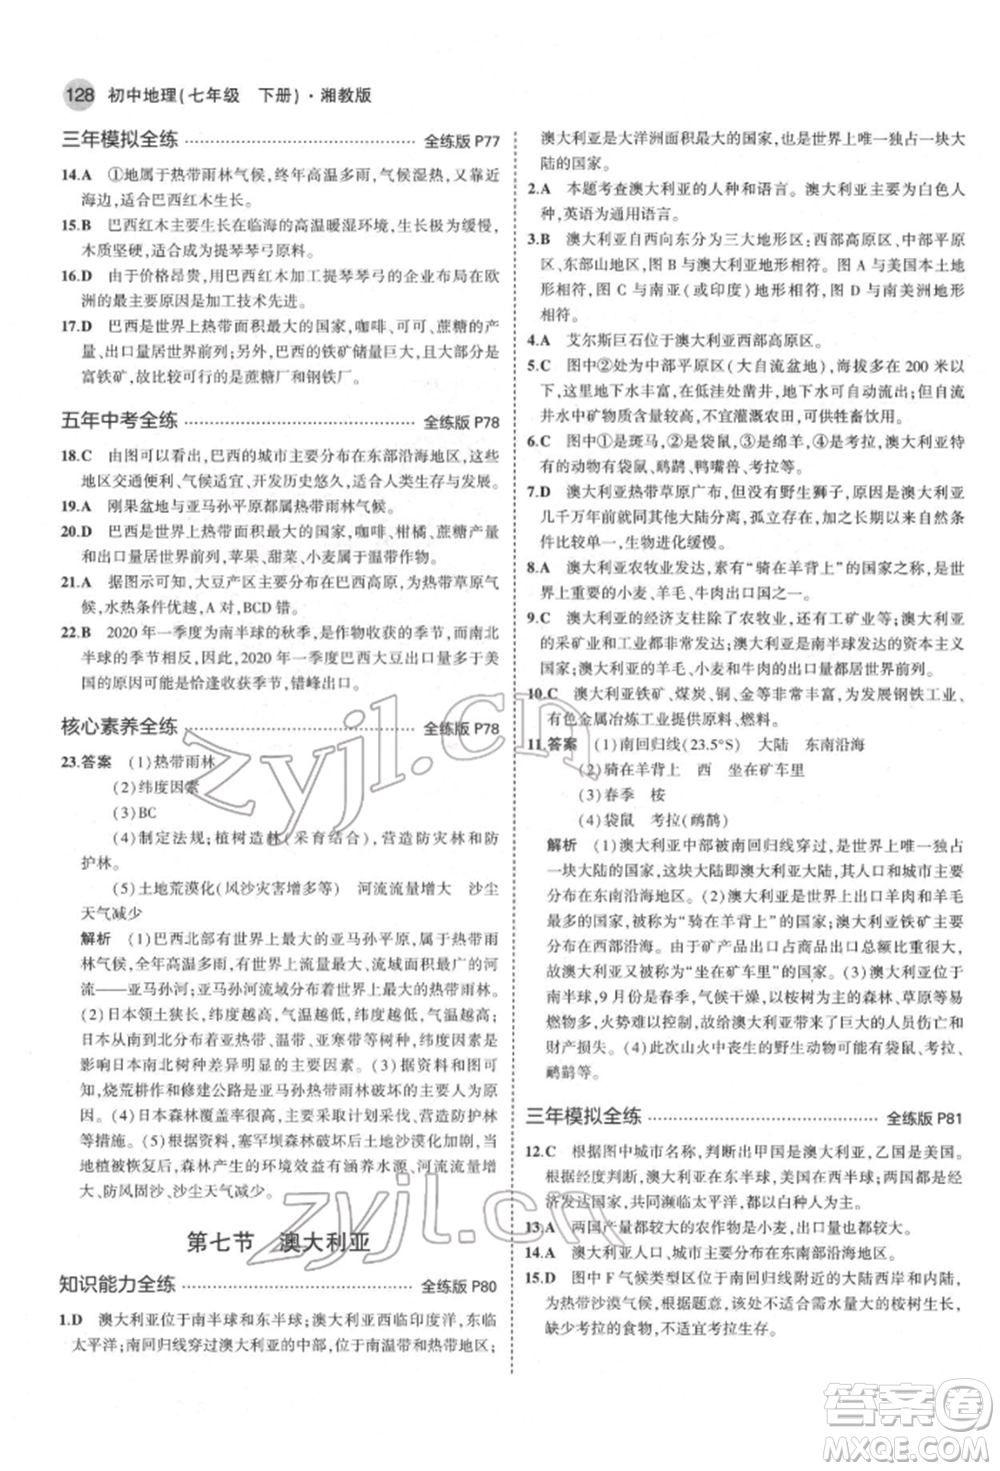 128 初中地理(七年级 下册)·湘教版
三年模拟全练 全练版 P77
14.A ①地属于热带雨林气候,终年高温多雨,气候湿热,又靠近
海边,适合巴西红木生长。
15.B 巴西红木主要生长在临海的高温暖湿环境,生长极为缓慢,
木质坚硬,适合成为提琴琴弓原料。
16.D 由于价格昂贵,用巴西红木加工提琴琴弓的企业布局在欧
洲的最主要原因是加工技术先进。
17.D 巴西是世界上热带面积最大的国家,咖啡、可可、蔗糖的产
量、出口量居世界前列;另外,巴西的铁矿储量巨大,且多为
富铁矿,故比较可行的是蔗糖厂和钢铁厂。
五年中考全练 全练版 P78
18.C 由图可以看出,巴西的城市主要分布在东部沿海地区,这些
地区交通便利、气候适宜、开发历史悠久,适合人类生存与发展。
19.A 刚果盆地与亚马孙平原都属热带雨林气候。
20.D 巴西是世界上热带面积最大的国家,咖啡、柑橘、蔗糖的产
量和出口量居世界前列,苹果、甜菜、小麦属于温带作物。
21.A 据图示可知,大豆产区主要分布在巴西高原,为热带草原气
候,水热条件优越,A 对,BCD 错。
22.B 2020 年一季度为南半球的秋季,是作物收获的季节,而南北
半球的季节相反,因此,2020 年一季度巴西大豆出口量多于美
国的原因可能是恰逢收获季节,错峰出口。
核心素养全练 全练版 P78
23.答案 (1)热带雨林
(2)纬度因素
(3)BC
(4)制定法规;植树造林(采育结合),营造防灾林和防
护林。
(5)土地荒漠化(风沙灾害增多等) 河流流量增大 沙尘
天气减少
解析 (1)巴西北部有世界上最大的亚马孙平原,属于热带雨
林气候,森林面积广大,有世界上流量最大、流域面积最广的河
流——亚马孙河;亚马孙河流域有世界上最大的热带雨林。
(2)日本领土狭长,纬度越高,气温越低,纬度越低,气温越高,
日本从南到北分布着亚热带、温带、亚寒带等树种,纬度因素是
影响日本南北树种差异明显的主要因素。(3)据资料和图可
知,烧荒耕作和修建公路是亚马孙热带雨林破坏的主要原因。
(4)日本森林覆盖率很高,其主要原因是植树造林、营造防灾林
等措施。(5)草原植被破坏后,会出现土地沙漠化等问题;草原
植被恢复后,森林面积增大,会涵养水源、增加地表径流、保持水
土、防风固沙、沙尘天气减少等。
第七节 澳大利亚
知识能力全练 全练版 P80
1.D 澳大利亚位于南半球和东半球;澳大利亚西临印度洋,东临
太平洋;南回归线穿过澳大利亚的中部,位于南温带和热带地区;
澳大利亚是大洋洲面积最大的国家,也是世界上唯一独占一块大
陆的国家。
2.A 本题考查澳大利亚的人种和语言。澳大利亚主要为白色人
种,英语为通用语言。
3.B 澳大利亚自西向东分为三大地形区:西部高原、中部平原
区、东部山地区,图 B 与澳大利亚地形相符。图 A 与美国本土地
形相符,图 C 与南亚(或印度)地形相符,图 D 与南美洲地形
相符。
4.A 艾尔斯巨石位于澳大利亚西部高原。
5.C 图中②处为中部平原区(大自流盆地),海拔多在 200 米以
下,这里地下水丰富,在低洼处凿井,地下水可自流出;但自流
井水中矿物质含量较高,不宜灌溉农田,可供牲畜饮用。
6.C 图中①是斑马,②是袋鼠,③是绵羊,④是考拉,澳大利亚特
有的动物有袋鼠、鸸鹋、鸭嘴兽、考拉等。
7.D 澳大利亚热带草原广布,但没有野生狮子,原因是澳大利亚
几千万年前就与其他大陆分离,孤立存在,加之长期以来自然条
件比较单一,生物进化缓慢。
8.A 澳大利亚农牧业发达,素有“骑在羊背上”的国家之称,是世
界上重要的小麦、羊毛、牛肉出口国之一。
9.C 澳大利亚的经济支柱除了农牧业外,还有工矿业等;澳大利亚
的采矿业和工业都非常发达;澳大利亚是南半球发达的资本主义
国家;澳大利亚的羊毛、小麦和牛肉的出口量居世界前列。
10.C 澳大利亚铁矿、煤炭、铜、金等非常丰富,为发展钢铁工业、
有色金属冶炼工业提供原料、燃料。
11.答案 (1)南回归线(23.5°S) 大陆 东南沿海
(2)骑在羊背上 西 坐在矿车里
(3)春季 桉
(4)袋鼠 考拉(鸸鹋)
解析 (1)澳大利亚中部被南回归线穿过,是世界上唯一独占
一块大陆的国家,这块大陆即澳大利亚大陆,其城市和人口主要
分布在东南沿海地区。(2)澳大利亚是世界上出口羊肉和羊毛
最多的国家,被称为“骑在羊背上”的国家;澳大利亚铁矿主要
分布在西部沿海。由于矿产品出口占商品出口总额比重很大,
故澳大利亚被称为“坐在矿车里”的国家。(3)澳大利亚位于
南半球,9 月份是春季,气候干燥,以桉树为主的森林、草原等易
燃物多,火势难以控制,故给澳大利亚带来了巨大的人员伤亡和
财产损失。(4)此次山火中丧生的野生动物可能有袋鼠、考拉、
鸸鹋等。
三年模拟全练 全练版 P81
12.C 根据图中城市名称,判断出甲国是澳大利亚,乙国是美国。
根据经度判断,澳大利亚在东半球,美国在西半球,两国都是经
济发达国家,共同濒临太平洋,都以白种人为主。
13.A 两国产量都较大的农作物是小麦,出口量也较大。
14.A 澳大利亚人口、城市主要分布在东南沿海地区。
15.D 图中 F 气候类型区南回归线附近的大陆西岸和内陆地区,
为热带沙漠气候。根据题意,该处不适宜水量较大的桉树生长,
缺少考拉的食物,不适宜考拉生存。
zyjl.cn
zyjl.cn
答案圈
MXQE.COM